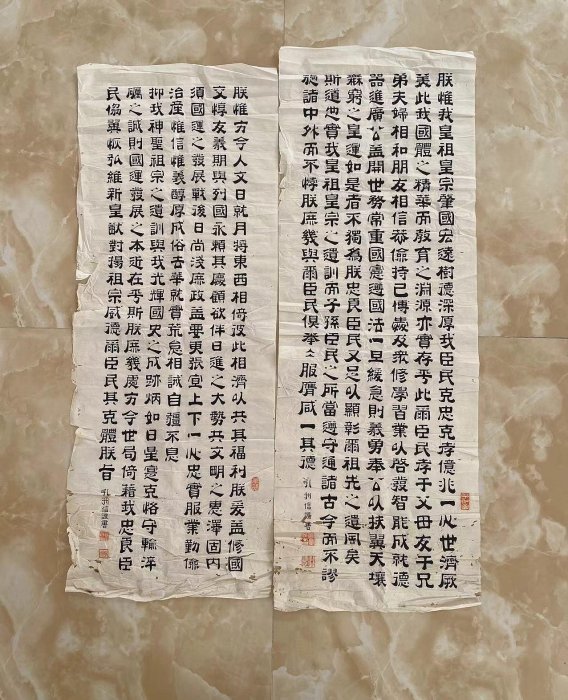 朕惟我皇祖皇宗肇國宏遠樹德深厚我臣民克忠克孝億兆一心世濟厥
美此我國體之精華而教育之淵源亦實存乎此爾臣民孝于父母友于兄
弟夫婦相和朋友相信恭儉持己博愛及衆修學習業以啓發智能成就德
器進廣公益開世務常重國憲遵國法一旦緩急則義勇奉公以扶翼天壤
無窮之皇運如是者不獨為朕忠良臣民又足以顯彰爾祖先之遺風矣
斯道也實我皇祖皇宗之遺訓而子孫臣民之所當遵守通諸古今而不謬
施諸中外而不悖朕庶幾與爾臣民俱拳々服膺咸一其德
朕惟方今人文日就月將東西相倚彼此相濟以共其福利朕爰益修國
交惇友義期與列國永頼其慶顧欲伴日進之大勢共文明之惠澤固内
須國運之發展戰後日尚淺庶政益要更張宜上下一心忠實服業勤儉
治產惟信惟義醇厚成俗去華就實荒怠相誡自彊不息
抑我神聖祖宗之遺訓與我光輝國史之成跡炳如日星寔克恪守輪淬
礪之誠則國運發展之本近在乎斯朕庶幾處方今世局倚藉我忠良臣
民協翼恢弘維新皇猷對揚祖宗威德爾臣民其克體朕旨